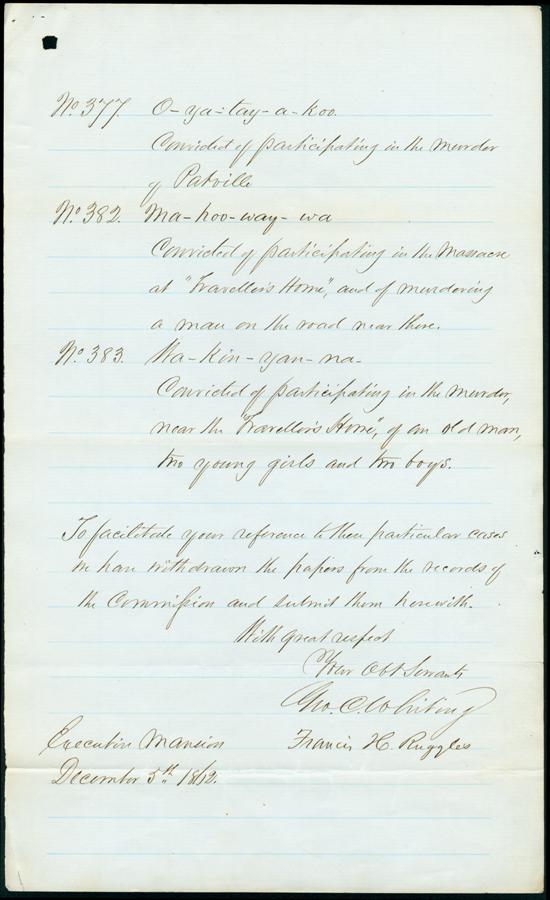 No. 377. O-ya-tay-a-koo.
Convicted of participating in the murder
of Patville
No. 382. Ma-hoo-way-wa
Convicted of participating in the Massacre
at "Travellers Home", and of murdering
a man on the road near there.
No. 383. Wa-kin-yan-na-
Convicted of participating in the murder,
near the "Travellers Home", of an old man,
two young girls and two boys.
To facilitate your reference to these particular cases
we have withdrawn the papers from the records of
the Commission and submit them herewith.
With great respect
Your Obt Servants
Geo. C. Whiting
Executive Mansion Francis H. Ruggles
December 5th. 1862.